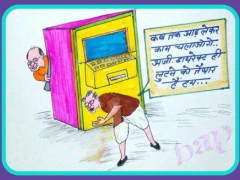 कब तक आड़ लेकर
काम चलाओगे..
अजी डायरेक्ट ही
लुटने को तैयार
हैं हम...